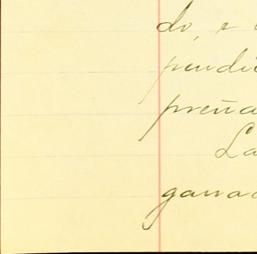 do, e
pendi
preña
La
ganad